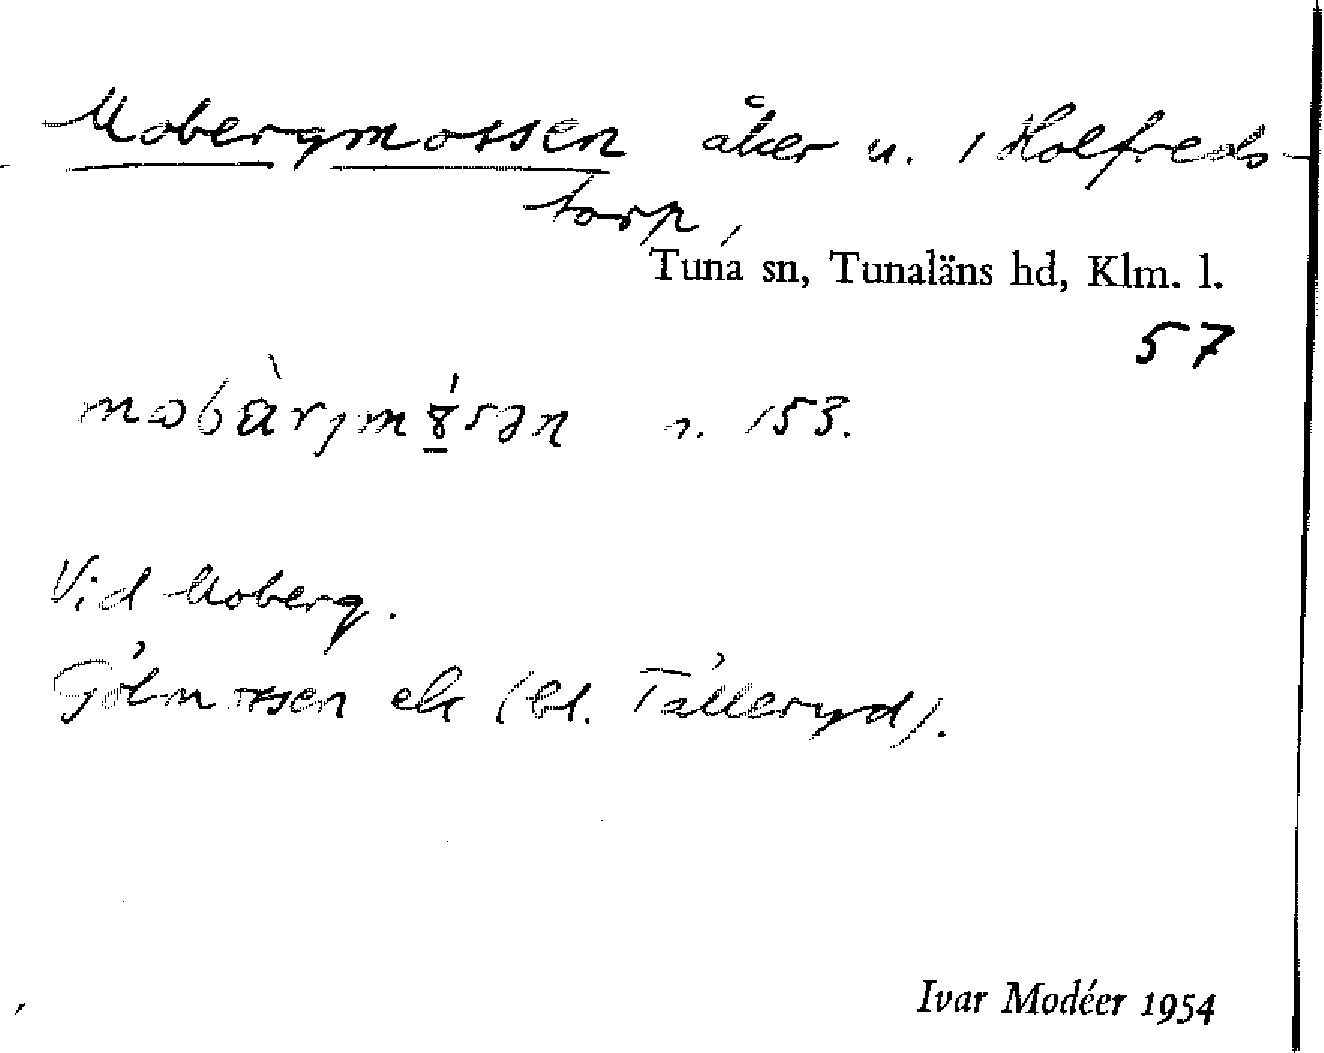 Mobergmossen åker u. 1 Holfreds-
torp,
Tuna sn, Tunaläns hd, Klm. l.
57
n. 153.
Vid Moberg.
Gölmossen ek (bl. Tälleryd).
Ivar Modéer 1954